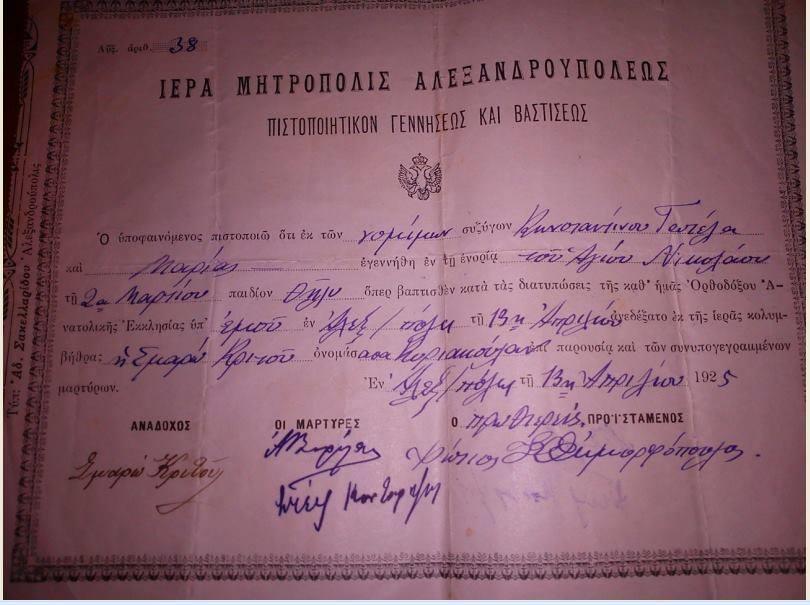 Αὔξ. ἀριθ. 38
ΙΕΡΑ ΜΗΤΡΟΠΟΛΙΣ ΑΛΕΞΑΝΔΡΟΥΠΟΛΕΩΣ
ΠΙΣΤΟΠΟΙΗΤΙΚΟΝ ΓΕΝΝΗΣΕΩΣ ΚΑΙ ΒΑΣΤΙΣΕΩΣ
Ὁ ὑποφαινόμενος πιστοποιῶ ὅτι ἐκ τῶν νομίμων συζύγων Κωνσταντίνου
καὶ Μαρίας ἐγεννήθη ἐν τῇ ἐνορίᾳ τοῦ Ἁγίου Νικολάου
τῇ 2ᾳ Μαρτίου παιδίον θῆλυ ὅπερ βαπτισθὲν κατὰ τὰς διατυπώσεις τῆς καθ' ἡμᾶς Ὀρθοδόξου Ἀ-
νατολικῆς Ἐκκλησίας ὑπ' ἐμοῦ ἐν Ἀλεξ/πόλει τῇ 13η Ἀπριλίου ἀνεδέξατο ἐκ τῆς ἱερᾶς κολυμ-
βήθρας ἡ Σμαρὼ Κρίτου ὀνομάσασα Κυριακούλαν ἐπὶ παρουσίᾳ καὶ τῶν συνυπογεγραμμένων
μαρτύρων. Ἐν Ἀλεξ/πόλει τῇ 13η Ἀπριλίου 1925
ΑΝΑΔΟΧΟΣ ΟΙ ΜΑΡΤΥΡΕΣ Ο ΠΡΟΪΣΤΑΜΕΝΟΣ
Σμαρὼ Κρίτου
Τύπ: Ἀδ. Σακελλαρίδου Ἀλεξανδρούπολις